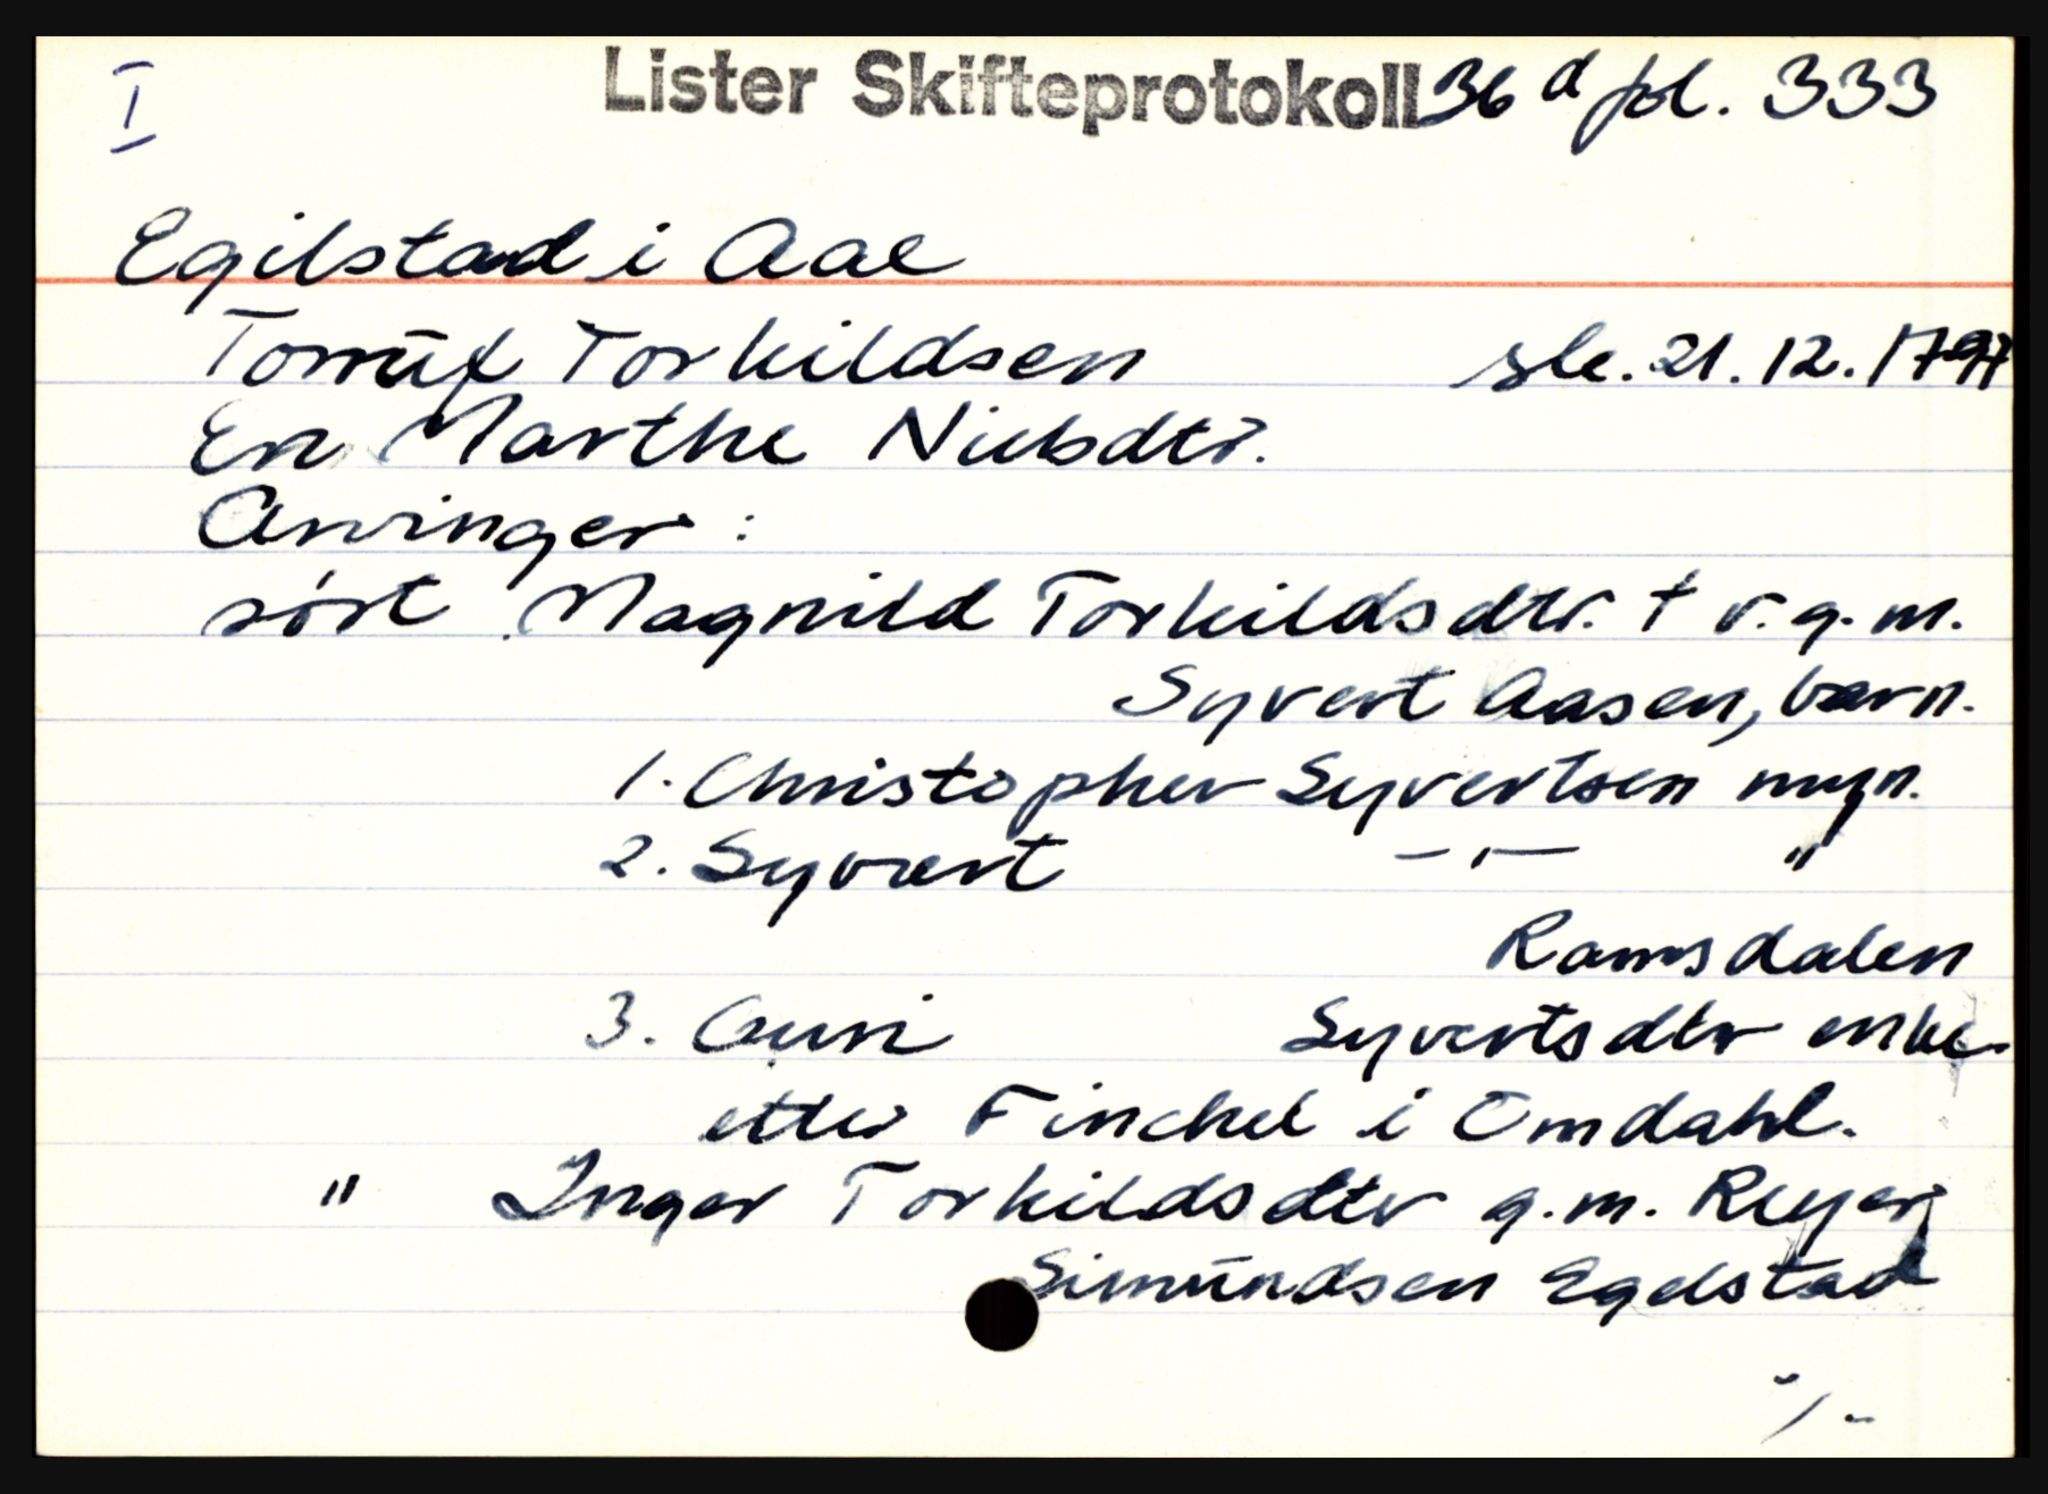 I
Lister Skifteprotokoll 36 d fol. 333
Egilstad i Aae
Tomüt Torkildsen sle. 21.12.1797
En Marthe Nielsdtr.
Arvinger:
søst Magnild Torkildsdtr. † v. g. m.
Syvert Aasen, barn.
1. Christopher Syvertsen myn.
2. Syvert -"- "
Ramsdalen
3. Guri Syvertsdtr enke
etter Finchel i Omdahl.
" Inger Torkildsdtr g. m. Reyer
Simündsen Egelstad
·/.